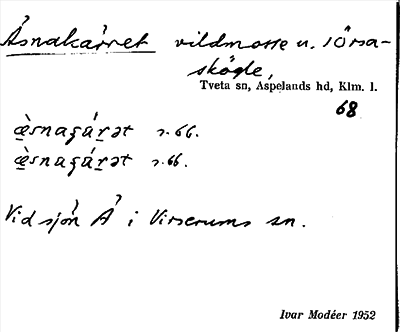 Åsnakärret vildmosse u. Örsa-
skögle,
Tveta sn, Aspelands hd, Klm. l.
68
æ̀snaɡáɽət r. 66.
æ̀snaɡáɽət r. 66.
Vid sjön Å i Virserums sn.
Ivar Modéer 1952